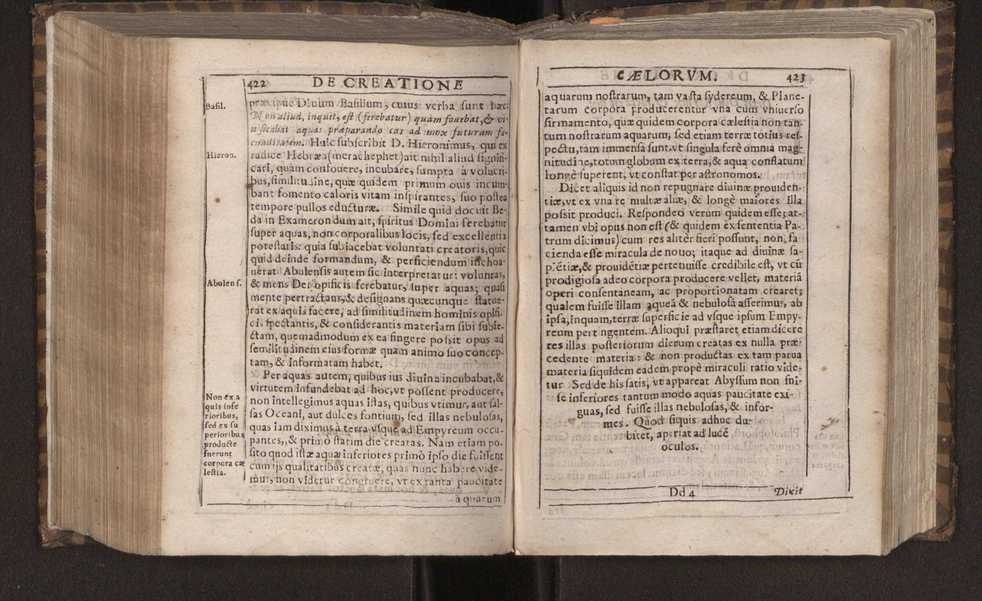 422 DE CREATIONE
Basil.
præcipue Diuum Basilium, cuius verba sunt hæc:
Non aliud, inquit, est (ferebatur) quàm fouebat, & vi
uificabat aquas præparando eas ad mox futuram fœ-
cunditatem. Huic subscribit D. Hieronimus, qui ex
Hieron.
radice Hebræa (merachephet) ait nihil aliud signifi-
cari, quàm confouere, incubare, sumpta à volucri-
bus, similitudine, quæ quidem primum ouis incum-
bant fomento caloris vitam inspirantes, suo postea
tempore pullos educturæ. Simile quid docuit Be-
da in Examerondum ait, spiritus Domini ferebatur
super aquas, non corporalibus locis, sed excellentia
potestatis: quia subiacebat voluntati creatoris, quic
quid deinde formandum, & perficiendum inchoa-
uerat Abulensis autem sic interpretatur: voluntas,
Abulens.
& mens Dei opificis ferebatur, super aquas; quasi
mente pertractans, & designans quæcunque statue-
rat ex aquis facere, ad similitudinem hominis opifi-
cis spectantis, & considerantis materiam sibi subie-
ctam, quemadmodum ex ea fingere possit opus ad
semilitudinem eius formæ quam animo suo concep-
tam, & informatam habet.
Per aquas autem, quibus ius diuina incubabat, &
virtutem infundebat ad hoc, vt possent producere,
Non ex a
quis infe
rioribus,
sed ex su
perioribus
productæ
fuerunt
corpora cæ
lestia.
non intellegimus aquas istas, quibus vtimur, aut sal-
sas Oceani, aut dulces fontium, sed illas nebulosas,
quas iam diximus à terra vsque ad Empyreum occu-
pantes, & primo statim die creatas. Nam etiam po-
sito quod istæ aquæ inferiores primò ipso die fuissent
cum ijs qualitatibus creatæ, quas nunc habere vide-
mus, non videtur congruere, vt ex tanta paucitate
aquarum
CÆLORVM. 423
aquarum nostrarum, tam vasta sydereum, & Plane-
tarum corpora producerentur vna cum vniuerso
firmamento, quæ quidem corpora cælestia non tan-
tum nostrarum aquarum, sed etiam terræ totius res-
pectu, tam immensa sunt. vt singula ferè omnia mag-
nitudine, totum globum ex terra, & aqua conflatum
longè superent, vt constat per astronomos.
Dicet aliquis id non repugnare diuinæ prouiden-
tiæ, vt ex vna re multæ aliæ, & longè maiores illa
possit produci. Respondeo verum quidem esse; at-
tamen vbi opus non est (& quidem ex sententia Pa-
trum dicimus) cum res aliter fieri possunt, non, fa
cienda esse miracula de nouo; itaque ad diuinæ sa-
piētiæ, & prouidētiæ pertenuisse credibile est, vt cū
prodigiosa adeo corpora producere vellet, materiā
operi consentaneam, ac proportionatam crearet;
qualem fuisse illam aqueā & nebulosā asserimus, ab
ipsa, inquam, terræ superficie ad vsque ipsum Empy-
reum pertingentem. Alioqui præstaret etiam dicere
res illas posteriorum dierum creatas ex nulla præ-
cedente materia: & non productas ex tam parua
materia siquidem eadem propè miraculi ratio vide-
tur Sed de his satis, vt appareat Abyssum non fuis-
se inferiores tantum modo aquas paucitate exi-
guas, sed fuisse illas nebulosas, & infor-
mes. Quod siquis adhuc du-
bitet, aperiat ad lucē
oculos.
Dd 4 Dixit